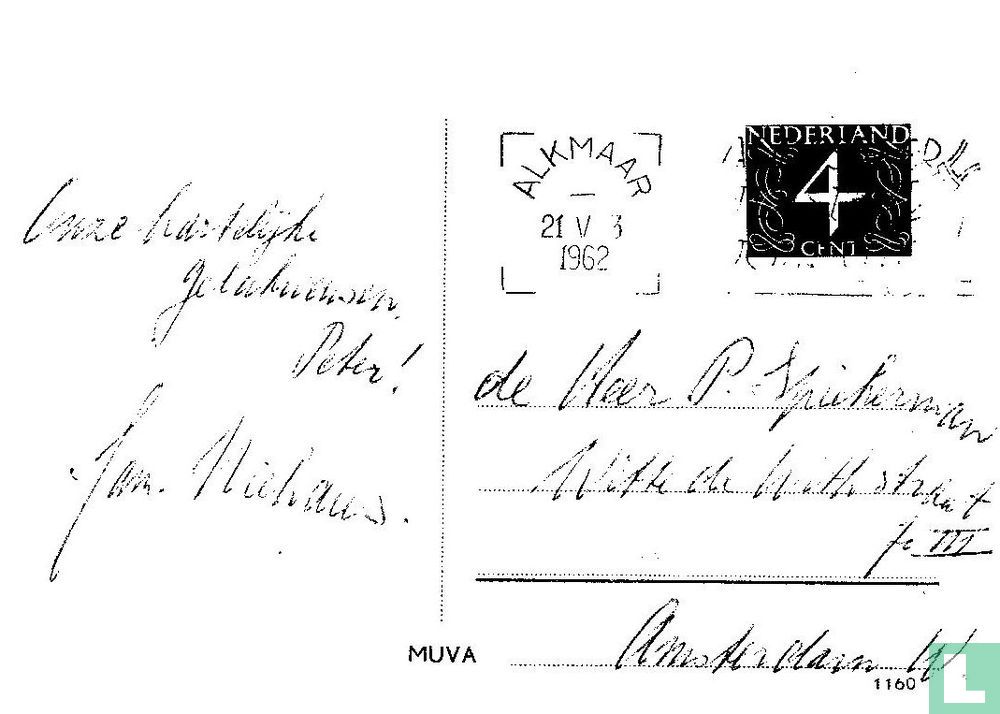 Onze hartelijke
gelukwensen,
Peter!
Fam. Niehaus.
ALKMAAR
21 V 3
1962
NEDERLAND
4
CENT
de Heer P. Spiekerman
Witte de Withstraat
III
Amsterdam W.
MUVA
1160
L